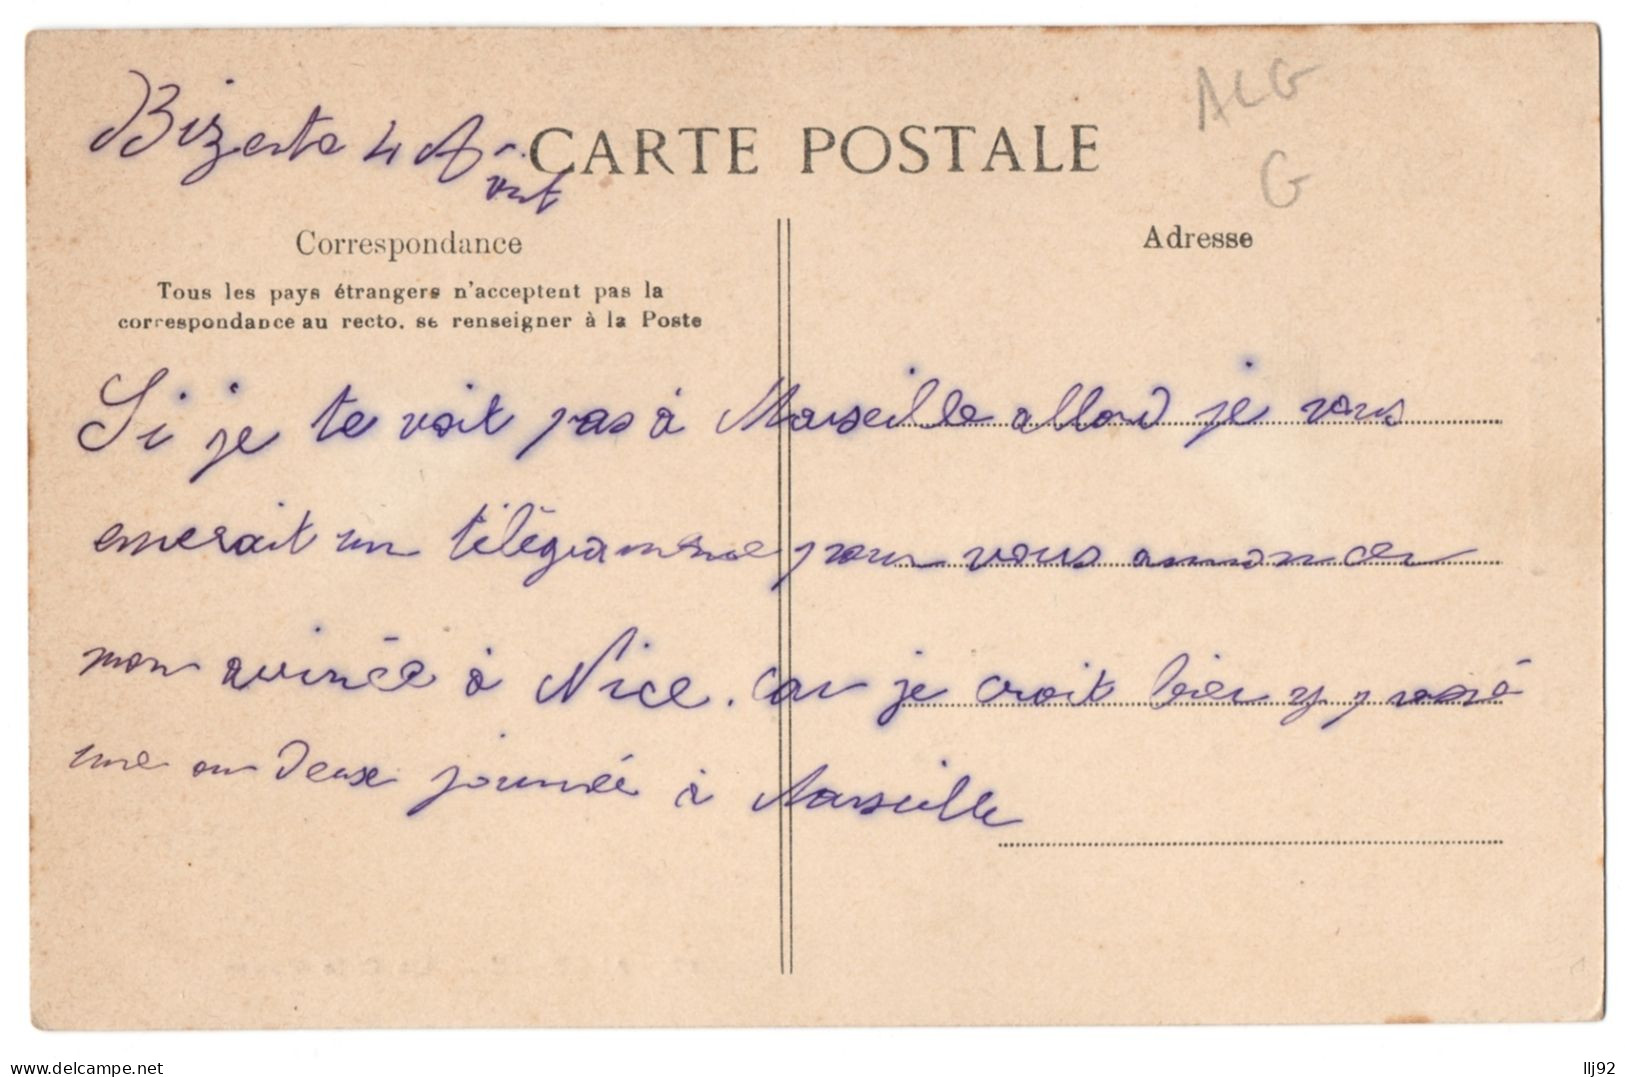 ALG
G
Bizerte 4 A
CARTE POSTALE
Correspondance
Adresse
Tous les pays étrangers n'acceptent pas la
correspondance au recto. se renseigner à la Poste
Si je te voit pas à Marseille allord je vous
enverait un télégramme pour vous annoncer
mon arrivée à Nice. Car je croit bien y passé
une ou deux journée à Marseille
delcampe.net
llj92